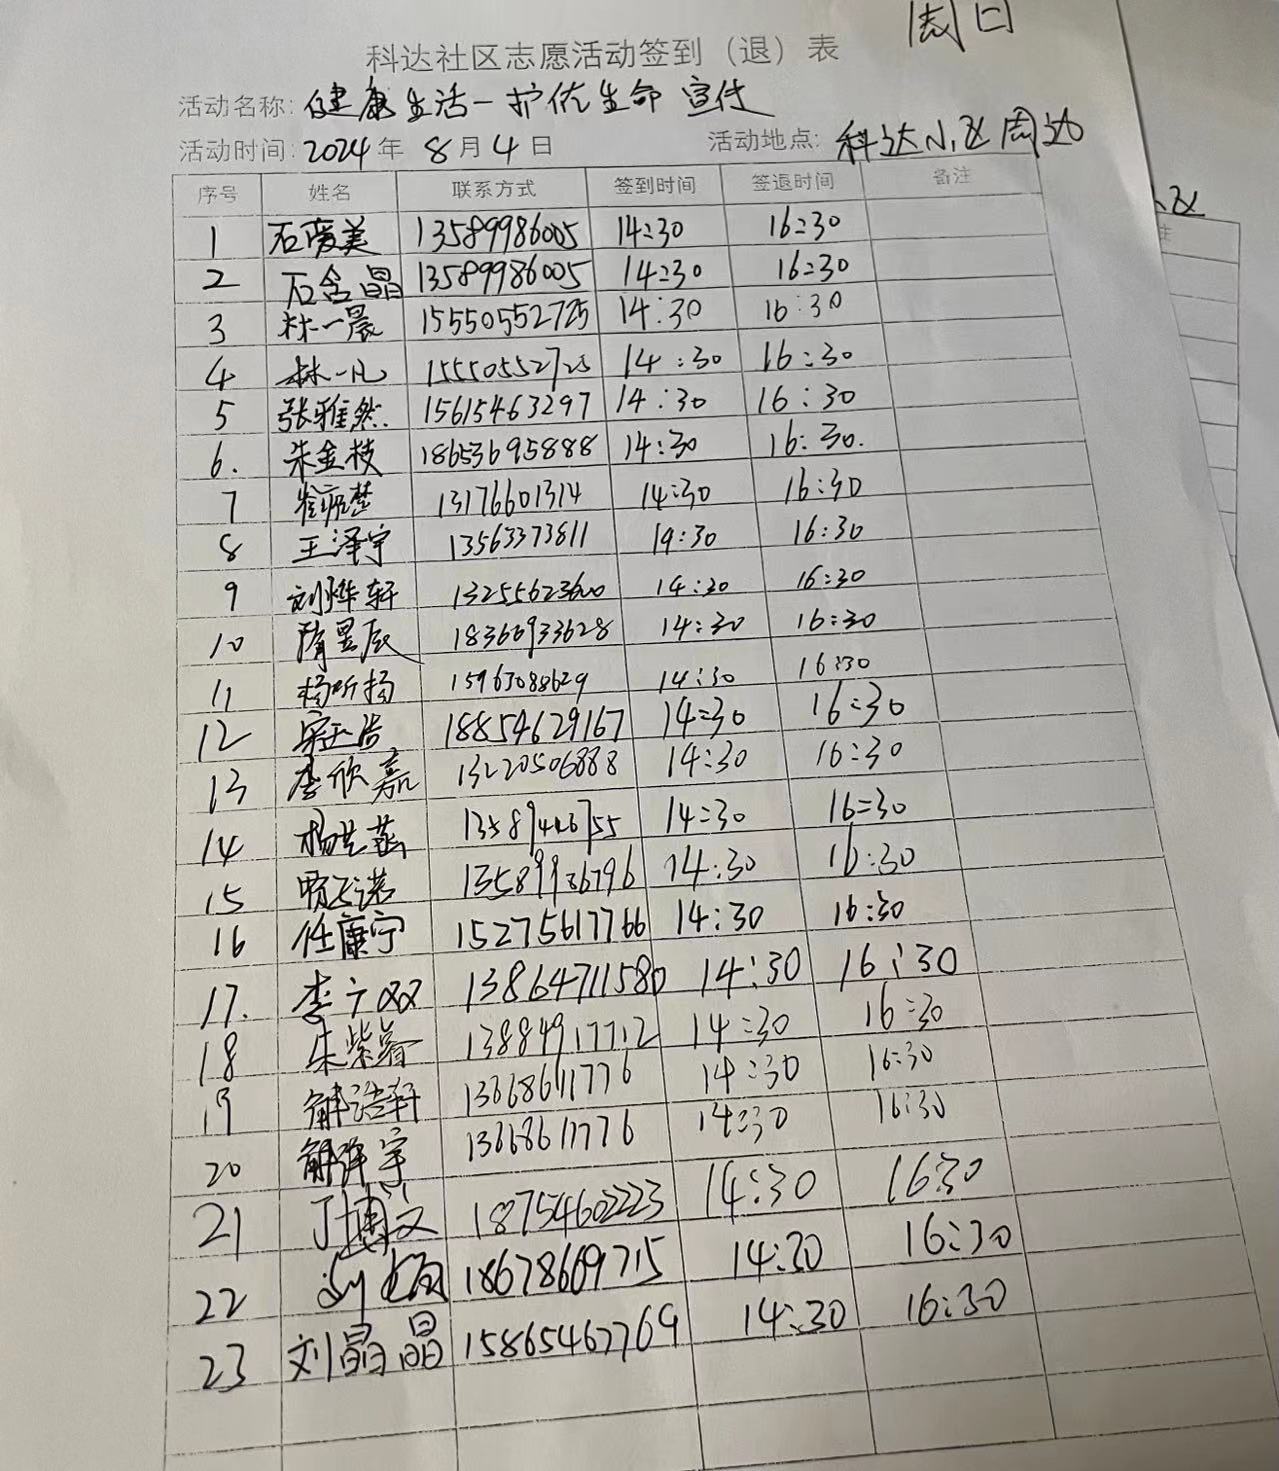 周日
科达社区志愿活动签到（退）表
活动名称: 健康生活一护佑生命 宣传
活动时间: 2024年 8月4日 活动地点: 科达小区周边
序号 姓名 联系方式 签到时间 签退时间 备注
1 石爱美 13589986005 14:30 16:30
2 石含晶 13589986005 14:30 16:30
3 林一晨 15550552725 14:30 16:30
4 林一凡 15550552725 14:30 16:30
5 张雅然. 15615463297 14:30 16:30
6. 朱金枝 18653695888 14:30 16:30.
7 13176601314 14:30 16:30
8 王泽宇 13563373811 14:30 16:30
9 刘烨轩 13255623600 14:30 16:30
10 隋昱辰 18366933628 14:30 16:30
11 杨昕扬 15963088629 14:30 16:30
12 18854629167 14:30 16:30
13 李欣嘉 13220506888 14:30 16:30
14 14:30 16:30
15 13589986796 14:30 16:30
16 任康宁 15275617766 14:30 16:30
17. 李广双 13864711580 14:30 16:30
18 朱紫睿 14:30 16:30
19 解浩轩 14:30 16:30
20 14:30 16:30
21 丁博文 18754602223 14:30 16:30
22 18678669715 14:30 16:30
23 刘晶晶 15865467769 14:30 16:30